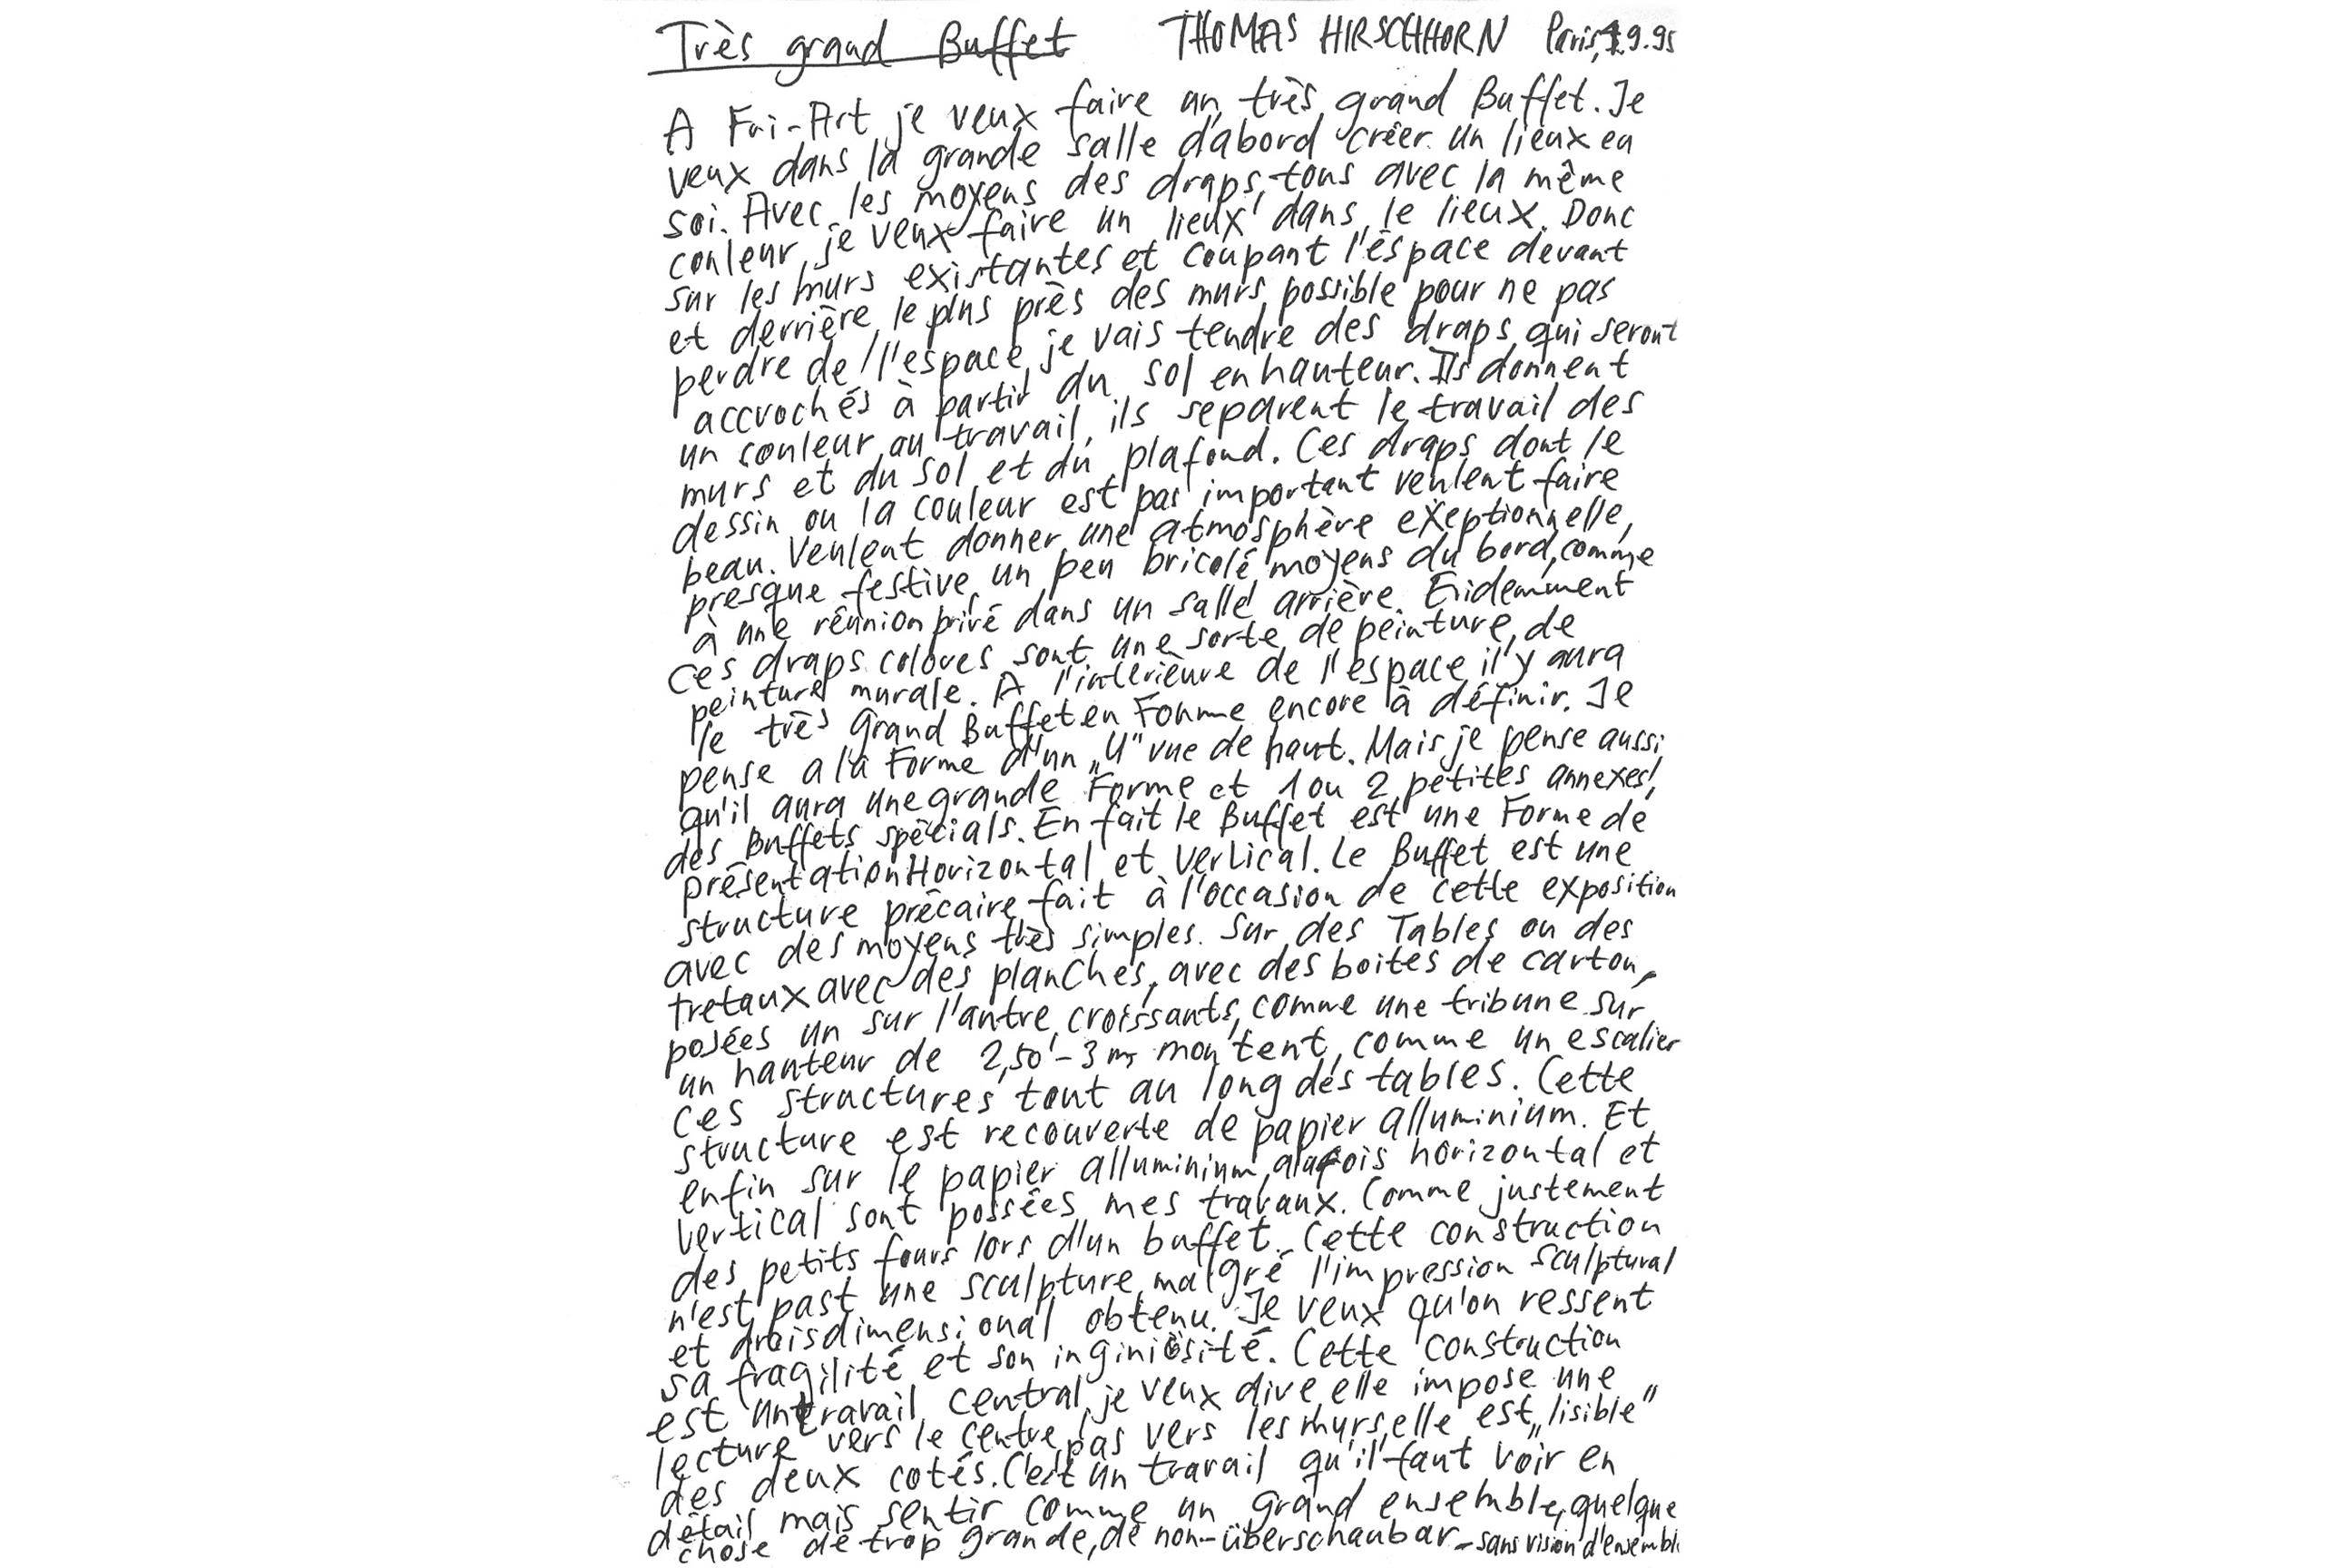 Très grand Buffet THOMAS HIRSCHHORN Paris, 1.9.95
A Fri-Art je veux faire un très grand Buffet. Je
veux dans la grande salle d'abord créer un lieux en
soi. Avec les moyens des draps, tous avec la même
couleur, je veux faire un lieux dans le lieux. Donc
sur les murs existantes et coupant l'éspace devant
et derrière, le plus près des murs possible pour ne pas
perdre de l'espace, je vais tendre des draps, qui seront
accrochés à partir du sol en hauteur. Ils donnent
un couleur au travail, ils separent le travail des
murs et du sol et du plafond. Ces draps dont le
dessin ou la couleur est pas important veulent faire
beau. Veulent donner une atmosphère exeptionnelle,
presque festive, un peu bricolé, moyens du bord, comme
à une réunion privé dans un salle arrière. Evidemment
ces draps colores sont une sorte de peinture, de
peinture murale. A l'intérieure de l'espace il'y aura
le très grand Buffet en Forme encore à définir. Je
pense a la Forme d'un „U" vue de haut. Mais je pense aussi
qu'il aura une grande Forme et 1 ou 2 petites annexes,
des Buffets spécials. En fait le Buffet est une Forme de
présentation Horizontal et Vertical. Le Buffet est une
structure précaire fait à l'occasion de cette exposition
avec des moyens très simples. Sur des Tables ou des
tretaux avec des planches, avec des boites de carton,
posées un sur l'autre, croissants, comme une tribune sur
un hauteur de 2,50 - 3 m, montent, comme un escalier
ces structures tout au long des tables. Cette
structure est recouverte de papier alluminium. Et
enfin sur le papier alluminium, a la fois horizontal et
vertical sont possées mes travaux. Comme justement
des petits fours lors d'un buffet. Cette construction
n'est past une sculpture, malgré l'impression sculptural
et droisdimensional obtenu. Je veux qu'on ressent
sa fragilité et son inginiösité. Cette construction
est un travail central, je veux dire elle impose une
lecture vers le centre, pas vers les murs, elle est „lisible"
des deux cotés. C'est un travail qu'il faut voir en
détail mais sentir comme un grand ensemble, quelque
chose de trop grande, de non-überschaubar - sans vision d'ensemble